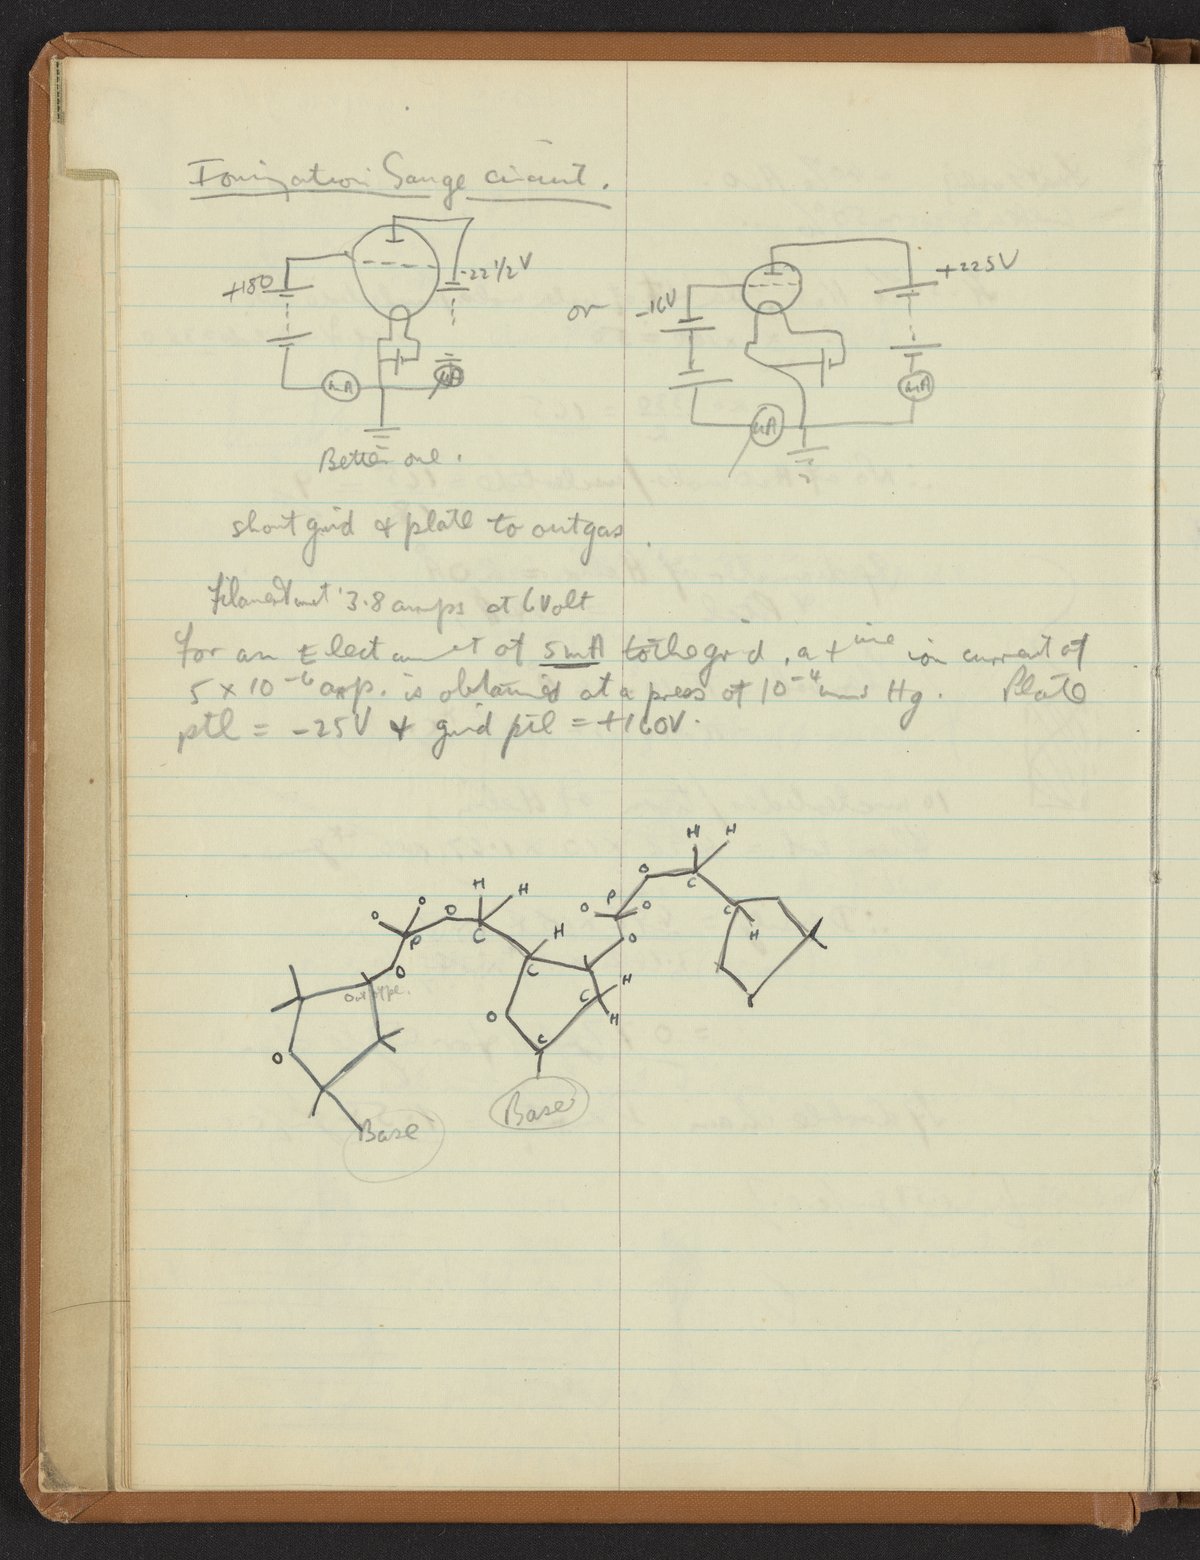 Ionization Gauge circuit.
+180
-22 1/2 V
mA
μA
or
-16V
+225V
μA
mA
Better one.
short grid & plate to outgas.
Filament 3.8 amps at 6 Volt
For an Elect current of 5mA to the grid, a +ive ion current of
5 × 10⁻⁶ amp. is obtained at a press of 10⁻⁴ mms Hg. Plate
ptl = -25V & grid ptl = +160V.
H H
O C
P
O O
C H
O
H H
O O O C
P
H
C
O
C H
H
O
C
O
Base
Base